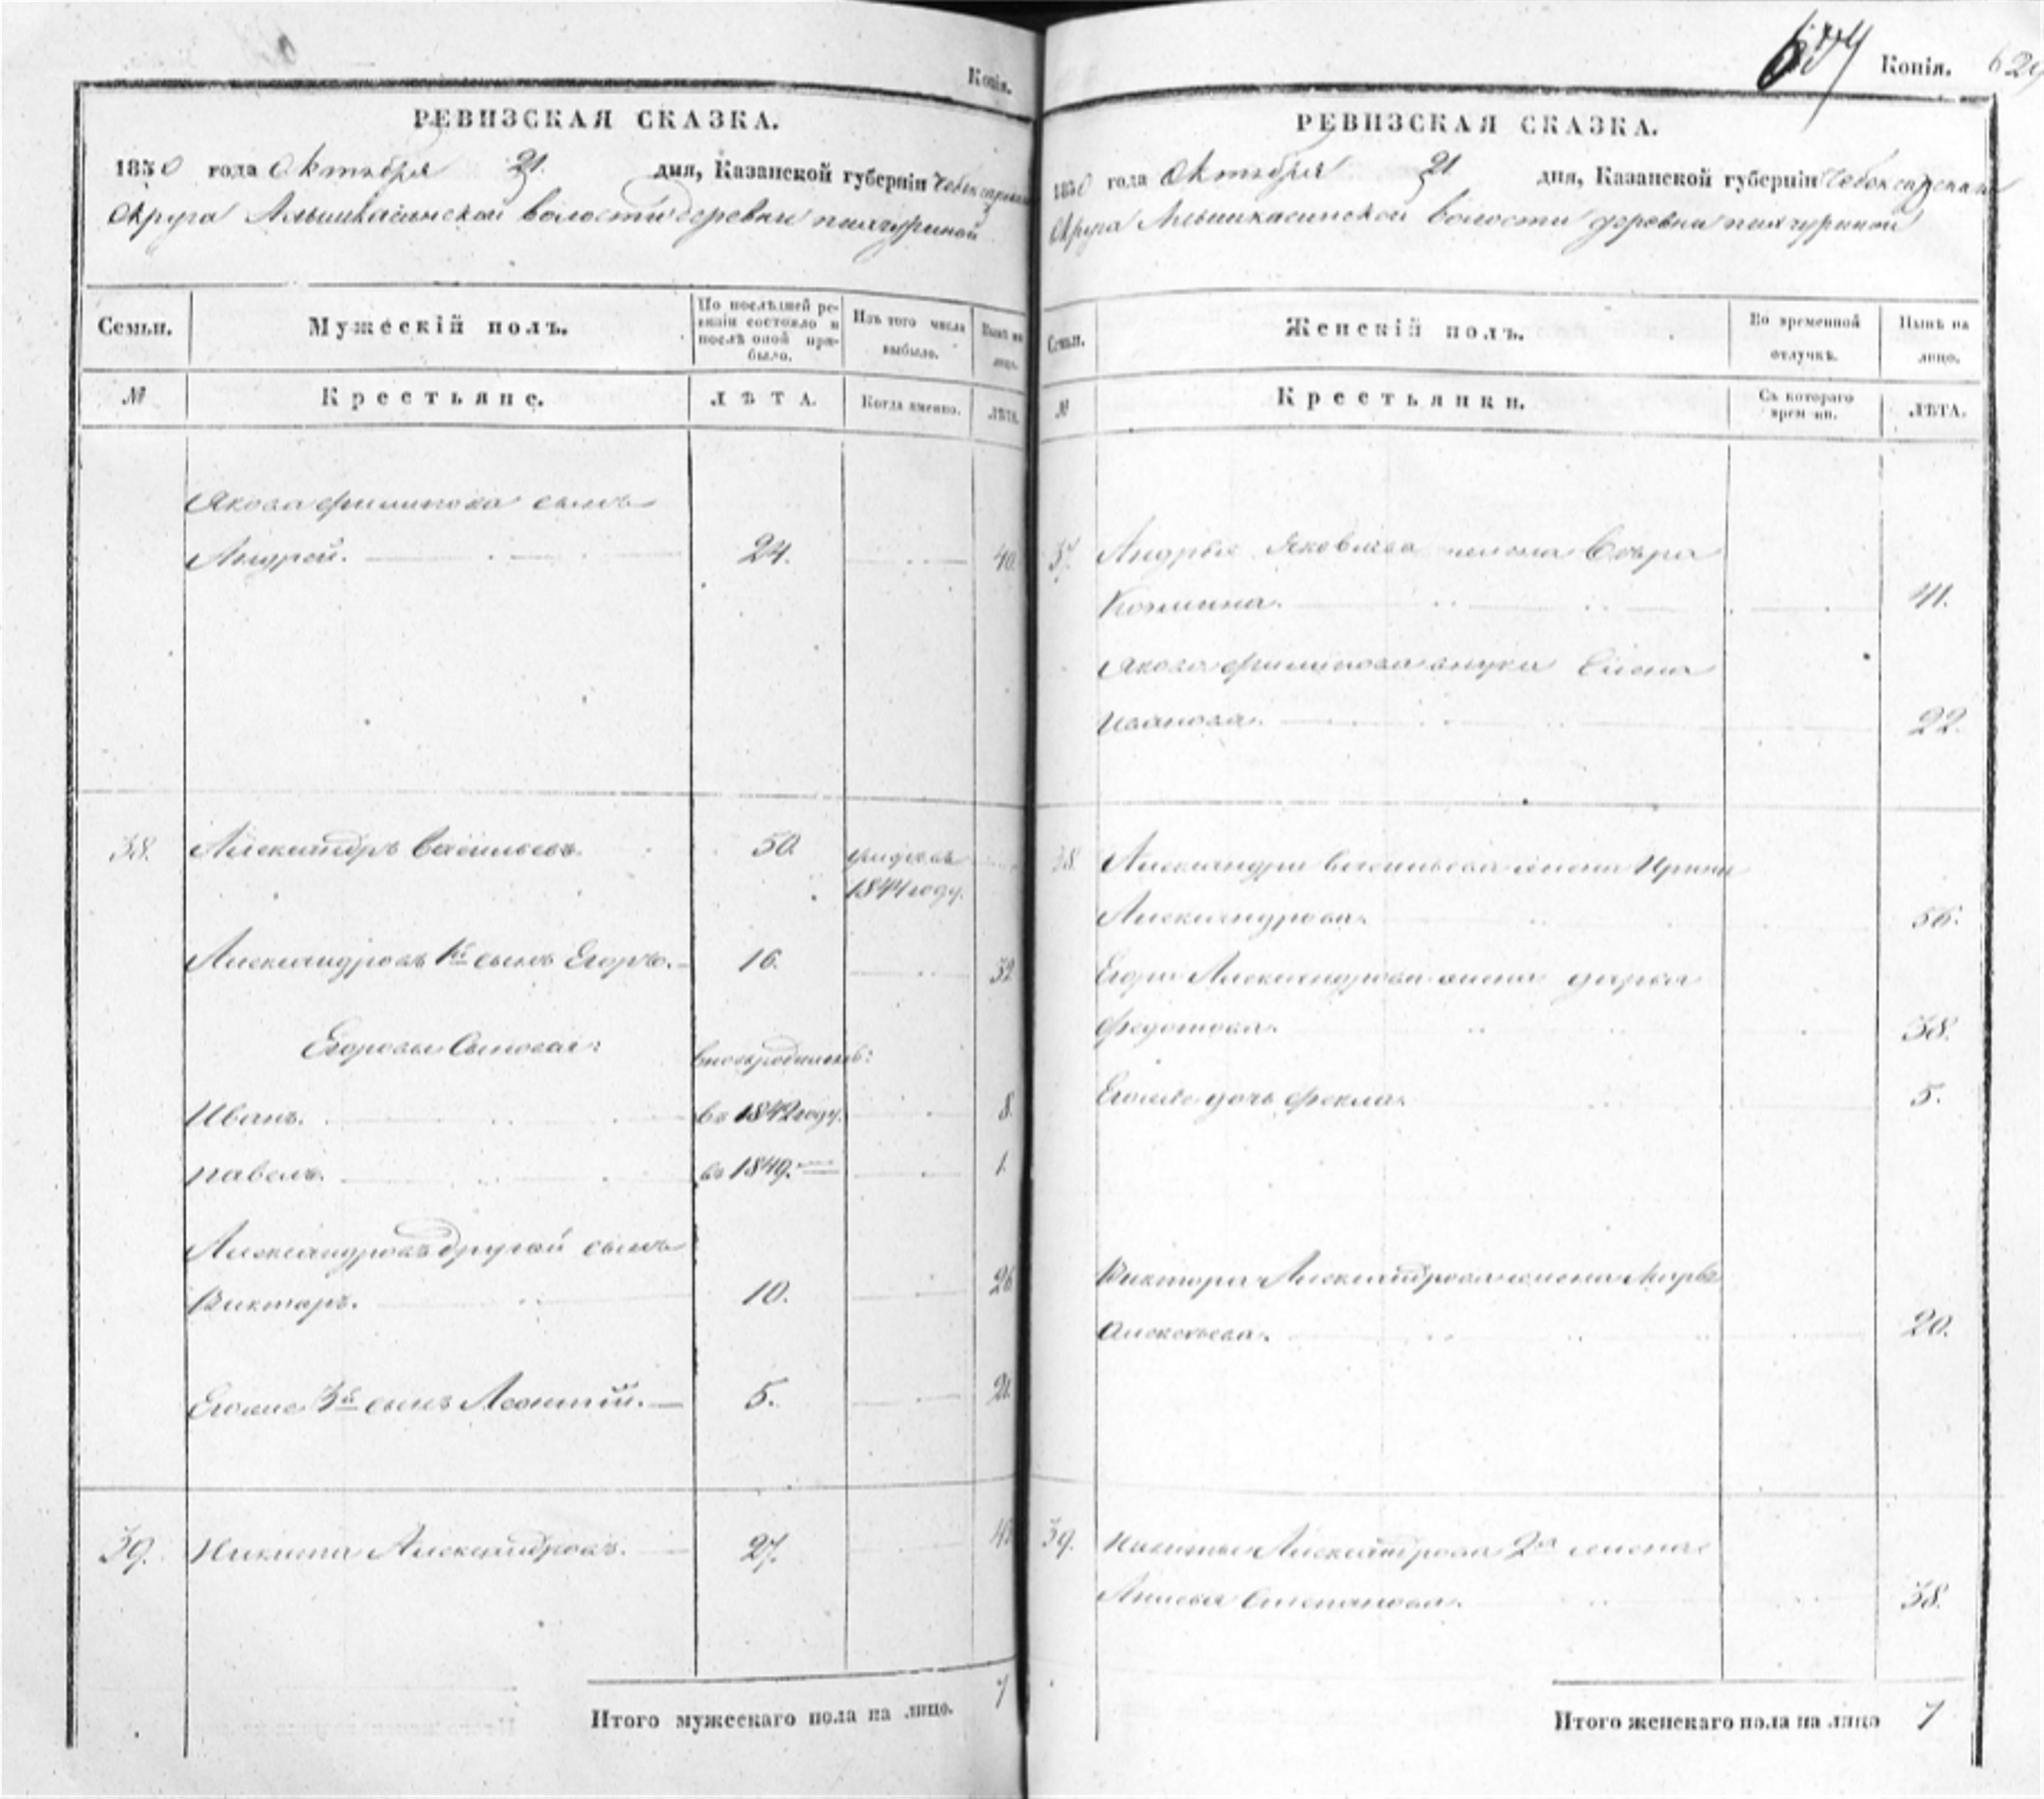 Копія.
РЕВИЗСКАЯ СКАЗКА.
1850 года Октября 21 дня, Казанской губерніи Чебоксарскаго
Округа Альшикасинской волости деревни пихчуриной
Семьи.
Мужескій полъ.
По послѣдней ре-
визіи состояло и
послѣ оной при-
было.
Изъ того числа
выбыло.
Нынѣ на
лицо.
№
Крестьяне.
ЛѢТА.
Когда именно.
ЛѢТА.
Якова филипова сынъ
Андрей. 24. 40.
38. Александръ Васильевъ. 50.
1844 году.
Александровъ 1й сынъ Егоръ. 16. 32
Егоровы Сыновья:
вновьрожденный:
Иванъ. въ 1842 году. 8.
павелъ. въ 1849. 1.
Александровъ другой сынъ
Викторъ. 10. 26
Егоже 3й сынъ Леонтій. 5. 21.
39. Никита Александровъ. 27. 43
Итого мужескаго пола на лицо. 7
674
Копія. 629
РЕВИЗСКАЯ СКАЗКА.
1850 года Октября 21 дня, Казанской губерніи Чебоксарскаго
Округа Альшикасинской волости деревни пихчуриной
Семьи.
Женскій полъ.
Во временной
отлучкѣ.
Нынѣ на
лицо.
№
Крестьянки.
Съ котораго
времени.
ЛѢТА.
37. Андрея Яковлева жена
Козмина. 41.
Якова филипова внука Елена
Иванова. 22.
38. Александра васильева жена Ирина
Александрова. 56.
Егора Александрова жена дарья
федотова. 38.
Егоже дочь фекла. 5.
Виктора Александрова жена Марья
Алексѣева. 20.
39. Никиты Александрова 2я жена
Степанова. 38.
Итого женскаго пола на лицо 7